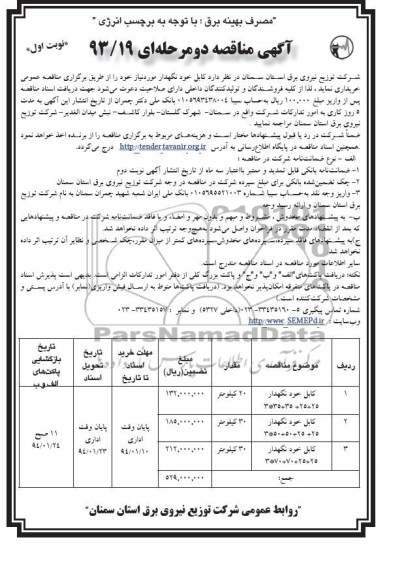 "مصرف بهینه برق ؛ با توجه به برچسب انرژی"
آگهی مناقصه دومرحله‌ای ۹۳/۱۹
"نوبت اول"
شرکت توزیع نیروی برق استان سمنان در نظر دارد کابل خود نگهدار موردنیاز خود را از طریق برگزاری مناقصه عمومی
خریداری نماید ، لذا از کلیه فروشندگان و تولیدکنندگان داخلی دارای صلاحیت دعوت می‌شود جهت دریافت اسناد مناقصه
پس از واریز مبلغ ۱۰۰,۰۰۰ ریال به‌حساب سیبا ۰۱۰۵۶۹۳۴۳۸۰۰۴ بانک ملی دکتر چمران از تاریخ انتشار این آگهی به مدت
۵ روز کاری به امور تدارکات شرکت واقع در سمنان- شهرک گلستان- بلوار کاشف- نبش میدان الغدیر- شرکت توزیع
نیروی برق استان سمنان مراجعه نمایید .
ضمناً شرکت در رد یا قبول پیشنهادها مختار است و هزینه‌های مربوط به برگزاری مناقصه را از برنده اخذ خواهد نمود
.همچنین اسناد مناقصه در پایگاه اطلاع‌رسانی به آدرس http://tender.tavanir.org.ir درج می‌گردد.
الف – نوع ضمانت‌نامه شرکت در مناقصه :
۱- ضمانت‌نامه بانکی قابل تمدید و معتبر بااعتبار سه ماه از تاریخ انتشار آگهی نوبت دوم
۲- چک تضمین‌شده بانکی برای مبلغ سپرده شرکت در مناقصه در وجه شرکت توزیع نیروی برق استان سمنان
۳- واریز وجه نقد به‌حساب سیبا شماره بانک ملی ایران شعبه شهید چمران به نام شرکت توزیع نیروی
برق استان سمنان و ارائه رسید وجه
ب- به پیشنهادهای مخدوش ، مشروط و مبهم و بدون مهر و امضاء و یا فاقد ضمانت‌نامه شرکت در مناقصه و پیشنهادهایی
که بعد از انقضاء مدت مقرر در فراخوان واصل می‌شود به‌هیچ‌وجه ترتیب اثر داده نخواهد شد.
ج)به پیشنهادهای فاقد سپرده،سپرده‌های مخدوش،سپرده‌های کمتر از میزان مقرر،چک شخصی و نظایر آن ترتیب اثر داده
نخواهد شد.
سایر اطلاعات مورد مناقصه در اسناد مناقصه مندرج است.
نکته: دریافت پاکت‌های"الف" و"ب" و"ج" و پاکت بزرگ کلی از دفتر امور تدارکات الزامی است. بدیهی است پذیرش اسناد
مناقصه در پاکت‌های متفرقه امکان‌پذیر نخواهد بود. (دریافت پاکت‌ها منوط به ارسال فیش واریزی(نمابر) با آدرس پستی و
مشخصات شرکت‌کننده است.)
شماره تماس پیگیری ۵- ۳۳۴۳۵۱۶۰-۰۲۳ (داخلی ۵۳۲۷) و نمابر : ۳۳۴۳۵۱۵۷۰-۰۲۳
وب‌سایت : http://www.SEMEPd.ir
ParsNamadData
ردیف موضوع مناقصه مقدار مبلغ تضمین(ریال) مهلت خرید اسناد تا تاریخ تاریخ تحویل اسناد تاریخ بازگشایی پاکت‌های الف‌و‌ب
۱ کابل خود نگهدار ۲۵+۲۵+۳۵*۳ ۲۰ کیلومتر ۱۳۲,۰۰۰,۰۰۰
۲ کابل خود نگهدار ۲۵+۲۵+۵۰+۵۰*۳ ۳۰ کیلومتر ۱۸۵,۰۰۰,۰۰۰ پایان وقت اداری ۹۴/۰۱/۱۰ پایان وقت اداری ۹۴/۰۱/۲۳ ۱۱ صبح ۹۴/۰۱/۲۴
۳ کابل خود نگهدار ۲۵+۲۵+۷۰+۷۰*۳ ۳۰ کیلومتر ۲۱۲,۰۰۰,۰۰۰
جمع: ۵۲۹,۰۰۰,۰۰۰
"روابط عمومی شرکت توزیع نیروی برق استان سمنان"